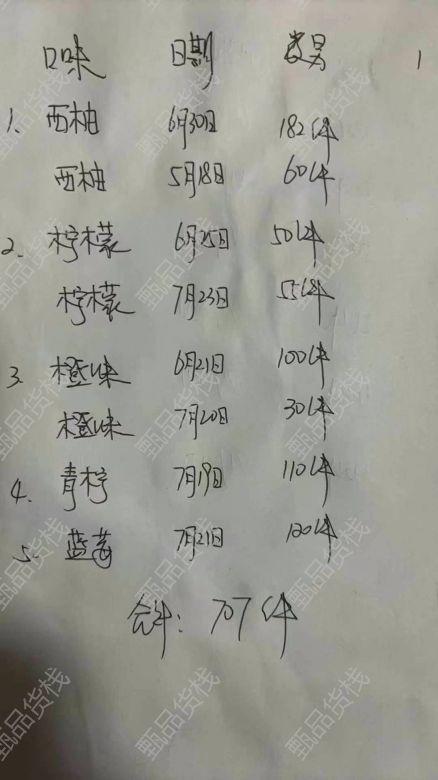 口味 日期 数另 1
1. 西柚 6月30日 182件
西柚 5月18日 60件
2. 柠檬 6月25日 50件
柠檬 7月23日 55件
3. 橙味 6月21日 100件
橙味 7月20日 30件
4. 青柠 7月19日 110件
5. 蓝莓 7月21日 120件
合计: 707件
甄品货栈